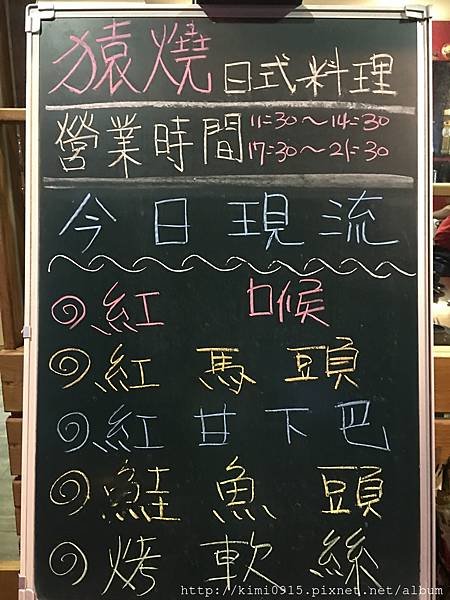 猿燒日式料理
營業時間 11:30～14:30
17:30～21:30
今日現流
紅 喉
紅 馬 頭
紅 甘 下 巴
鮭 魚 頭
烤 軟 絲
http://kimi0915.pixnet.net/album